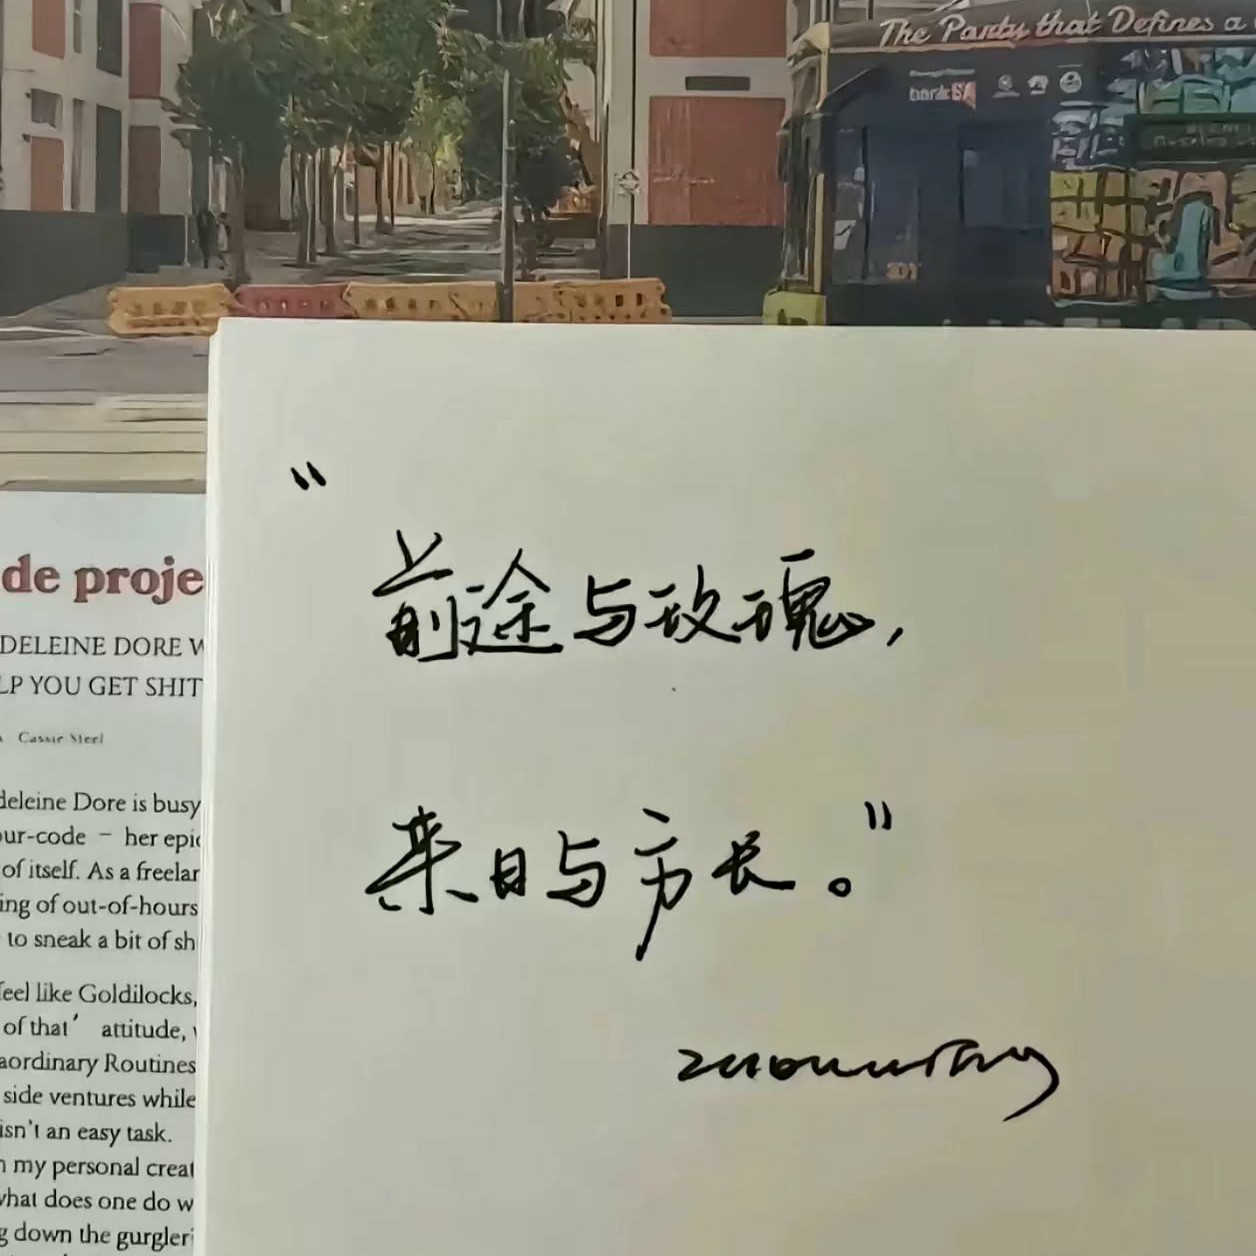 The Party that Defines a
bankSA
“
前途与玫瑰,
来日与方长。”
de proje
DELEINE DORE W
LP YOU GET SHIT
Cassie Steel
deleine Dore is busy
our-code – her epic
of itself. As a freelan
ing of out-of-hours
to sneak a bit of sh
feel like Goldilocks,
of that' attitude,
aordinary Routines
side ventures while
isn't an easy task.
n my personal creat
what does one do w
g down the gurgler